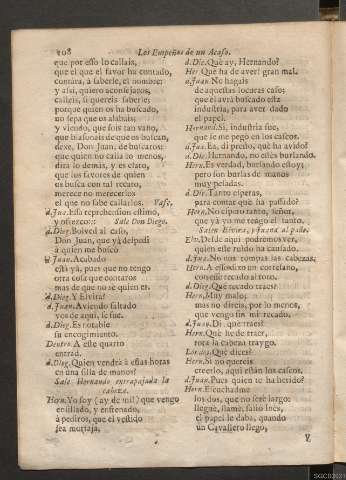 208
Los Empeños de un Acaso.
que por esso lo callais,
que el que el favor ha contado,
contára, à saberle, el nombre:
y assi, quiero aconsejaros,
calleis, si quereis saberle;
porque quien os ha buscado,
no sepa que os alabais;
y viendo, que sois tan vano,
que blasonais de que os buscan,
dexe, Don Juan, de buscaros:
que quien no calla lo menos,
dirà lo demàs, y es claro,
que los favores de quien
os busca con tal recato,
merece no merecerlos
el que no sabe callarlos. Vase.
d. Jua. Essa reprehension estimo,
y ofrezco:: Sale Don Diego.
d. Dieg. Bolved al caso,
Don Juan, que ya despedì
à quien me buscò
d. Juan. Acabado
està ya, pues que no tengo
otra cosa que contaros
mas de que no sè quien es.
d. Dieg. Y Elvira?
d. Juan. Aviendo saltado
vos de aqui, se fue.
d. Dieg. Es notable
su encogimiento.
Dentro. A este quarto
entrad.
d. Dieg. Quien vendrà à estas horas
en una silla de manos?
Sale Hernando entrapajada la
cabeza.
Hern. Yo soy (ay de mi!) que vengo
ensillado, y enfrenado,
à pediros, que el vestido
sea mortaja,
d. Die. Què ay, Hernando?
Her. Que ha de aver? gran mal.
d. Juan. No hagais
de aquestas locuras caso;
que el avrà buscado esta
industria, para aver dado
el papel.
Hernand. Si, industria fue,
que se me pegò en los cascos.
d. Juan. Ea, di presto, què ha avido?
d. Di. Hernando, no estès burlando.
Hern. Es verdad, burlando estoy;
pero son burlas de manos
muy pesadas.
d. Die. Tanto esperas,
para contar què ha passado?
Hern. No espero tanto, señor,
que yà yo me tengo el tanto.
Salen Elvira, y Juana al paño.
Elv. Desde aqui podremos ver,
quien este ruido ha causado.
d. Jua. No nos rompas las cabezas.
d. Dieg. Què recado traes?
Hern. Muy malo;
mas no direis, por lo menos,
que vengo sin mi recado.
d. Juan. Di, què traes?
Hern. Què he de traer,
rota la cabeza traygo.
Los dos. Què dices?
Hern. Si no quereis
creerlo, aqui estàn los cascos.
d. Juan. Pues quien te ha herido?
Hern. Escuchadme
los dos, que no serè largo:
lleguè, llamè, saliò Inès,
el papel le daba, quando
un Cavallero llegò,
V